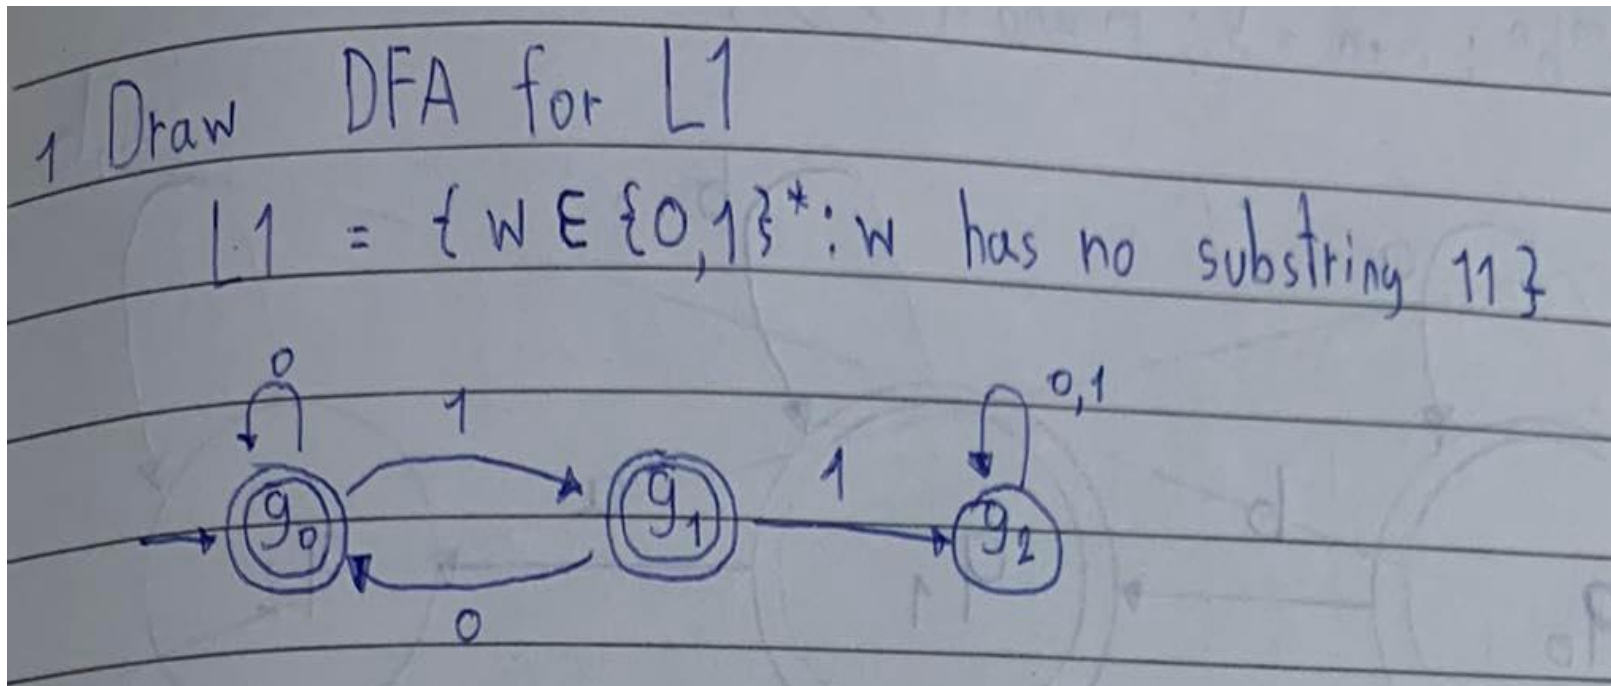 1 Draw DFA for L1
L1 = { W E {0,1}*: w has no substring 11 }
0 1 0,1
1
g₀ g₁ g₂
0